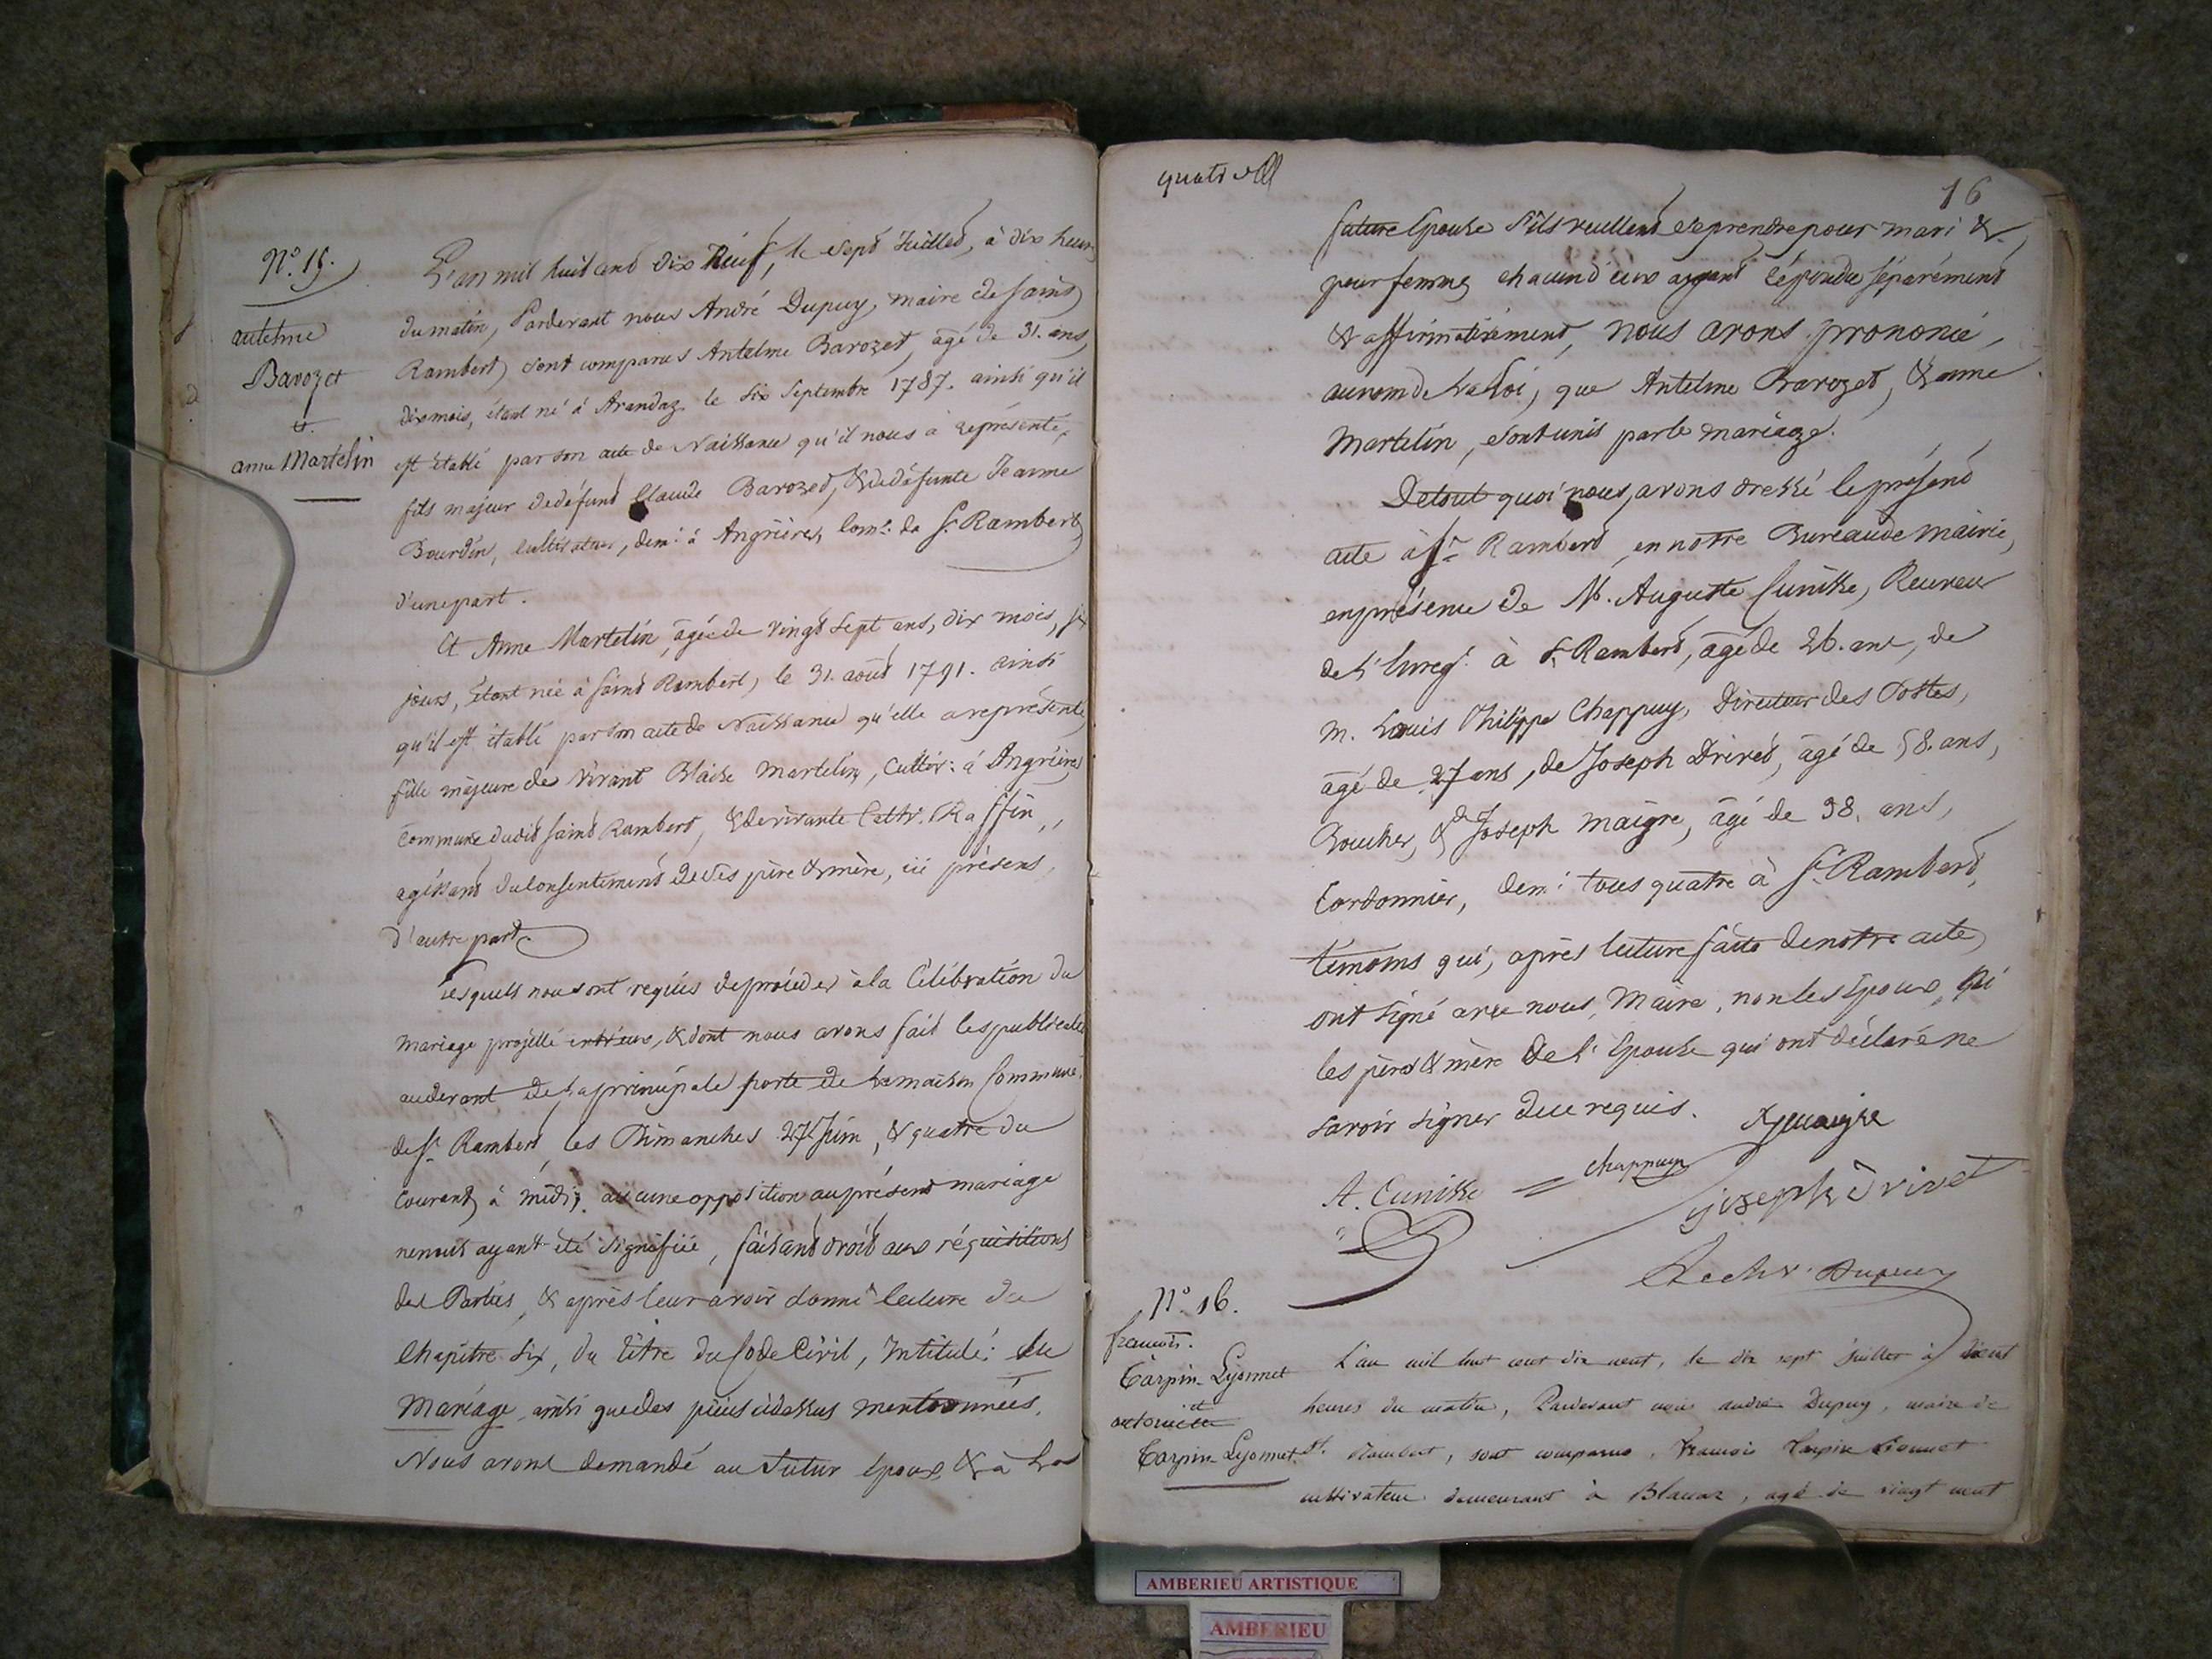 N.° 15.
antelme
Barozet
&
anne Martelin
L'an mil huit cent dix Neuf, le sept Juillet, à dix heures
du matin, Pardevant nous André Dupuy, maire de saint
Rambert, sont comparus Antelme Barozet, âgé de 31. ans,
dix mois, étant né à Arandaz le six Septembre 1787. ainsi qu'il
est établi par son acte de Naissance qu'il nous a représenté,
fils majeur de défunt Claude Barozet, & de défunte Jeanne
Bourdin, cultivateur, dem.t à Angrières, Com.e de St. Rambert
d'une part.
Et Anne Martelin, âgée de vingt sept ans, dix mois, six
jours, étant née à saint Rambert, le 31. août 1791. ainsi
qu'il est établi par son acte de Naissance qu'elle a représenté,
fille majeure de vivant Blaise Martelin, Cultiv: à Angrières
Commune dudit saint Rambert, & de vivante Cath.e Raffin,
agissant du Consentement de ses père & mère, ici présens,
d'autre part.
Lesquels nous ont requis de procéder à la Célébration du
mariage projetté entr'eux, & dont nous avons fait les publicat.s
au devant de la principale porte de la maison Commune
de St. Rambert, les Dimanches 27 Juin, & quatre du
Courant, à midi; aucune opposition au présent mariage
ne nous ayant été signifiée, faisant droit aux réquisitions
des Parties, & après leur avoir donné lecture du
Chapitre six, du titre du Code Civil, Intitulé: du
Mariage, ainsi que des pièces ci dessus mentionnées.
Nous avons demandé au futur époux, & à la
16
future épouse s'ils veullent se prendre pour mari &
pour femme, chacun d'eux ayant répondu séparément
& affirmativement, nous avons prononcé,
au nom de la Loi, que Antelme Barozet, & anne
Martelin, sont unis par le mariage.
De tout quoi nous, avons dressé le présent
acte à St. Rambert, en notre Bureau de mairie,
en présence de M. Auguste Cunisse, Receveur
de l'Enreg.t à St. Rambert, âgé de 26. ans, de
M. Louis Philippe Chappuy, Directeur des Postes,
âgé de 27 ans, de Joseph Drivet, âgé de 58. ans,
Boucher, & de Joseph Maigre, âgé de 38. ans,
Cordonnier, dem.t tous quatre à St. Rambert,
témoins qui, après lecture faite de notre acte,
ont signé avec nous, Maire, non les époux, ni
les père & mère de l'épouse qui ont déclaré ne
savoir signer de ce requis.
A. Cunisse
chappuy
joseph drivet
Dupuy
N.° 16.
francois
Carpin-Lyonnet
et
antoinette
Carpin-Lyonnet
L'an mil huit cent dix neuf, le dix sept juillet à
heures du matin, Pardevant nous andré Dupuy, maire de
St. Rambert, sont comparus, francois Carpin Lionnet
cultivateur demeurant à Blanaz, agé de vingt neuf
AMBERIEU ARTISTIQUE
AMBERIEU